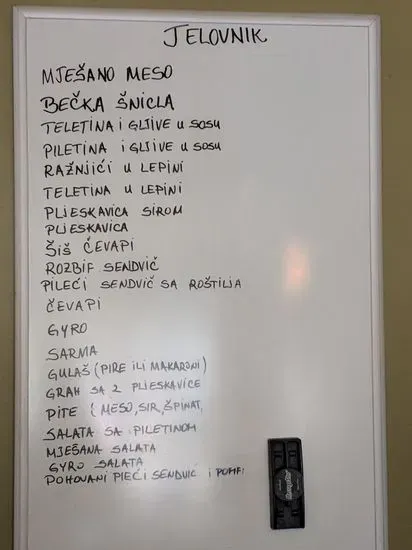 JELOVNIK
MJEŠANO MESO
BEČKA ŠNICLA
TELETINA I GLJIVE U SOSU
PILETINA I GLJIVE U SOSU
RAŽNJIĆI U LEPINI
TELETINA U LEPINI
PLJESKAVICA SIROM
PLJESKAVICA
ŠIŠ ČEVAPI
ROZBIF SENDVIČ
PILEĆI SENDVIČ SA ROŠTILJA
ČEVAPI
GYRO
SARMA
GULAŠ (PIRE ILI MAKARONI)
GRAH SA 2 PLJESKAVICE
PITE (MESO, SIR, ŠPINAT,
SALATA SA PILETINOM
MJEŠANA SALATA
GYRO SALATA
POHOVANI PIEĆI SENDVIČ I